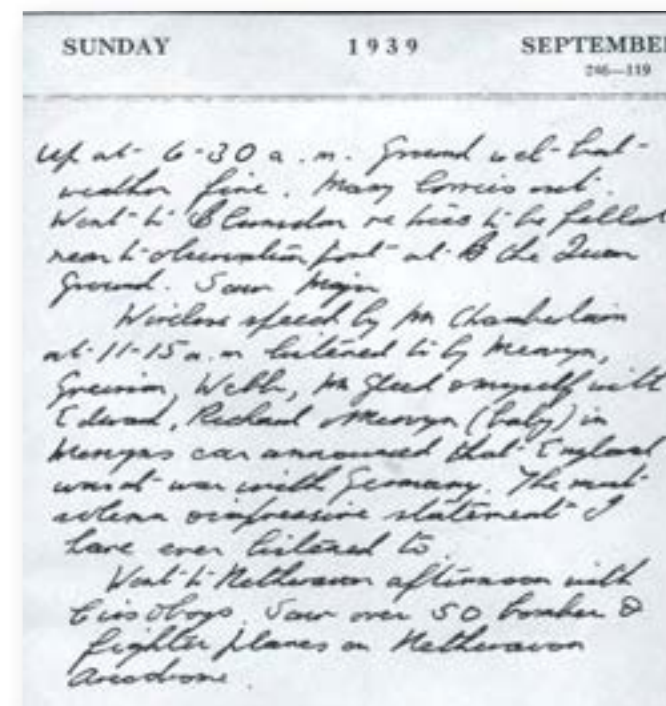 SUNDAY 1939 SEPTEMBE
246—119
Up at 6-30 a.m. Ground wet but
weather fine. Many lorries out.
Went to Blunsdon re trees to be felled
near to observation post at B the
Ground. Saw Major
Wireless speech by Mr Chamberlain
at 11-15 a.m listened to by Mervyn,
Webb, Mr Gleed & myself with
Edward, Richard & Mervyn (baby) in
Mervyns car announced that England
was at war with Germany. The most
solemn & impressive statement I
have ever listened to
Went to Netheravon afternoon with
& boys. Saw over 50 bomber &
fighter planes on Netheravon
Aerodrome.